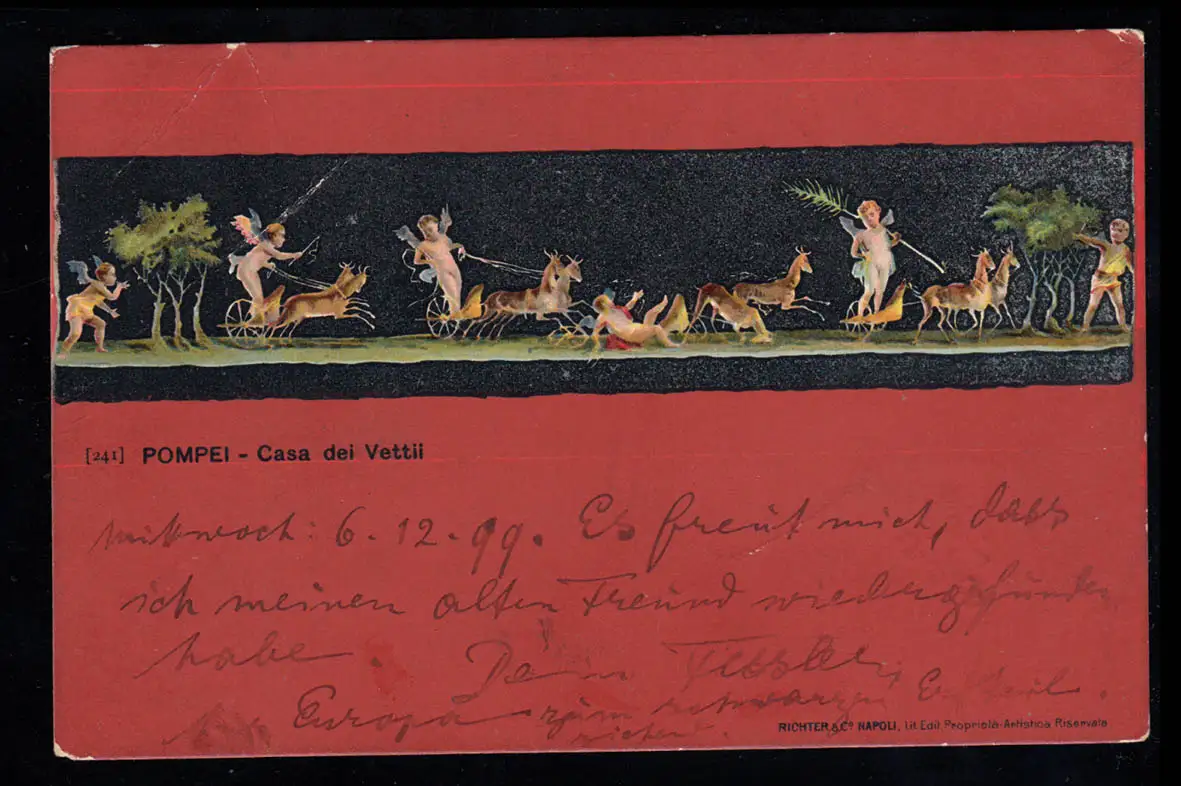 [241] POMPEI - Casa dei Vettii
Mittwoch: 6. 12. 99. Es freut mich, dass
ich meinen alten Freund wiedergefunden
habe. Dein
Europa zum schwarzen
RICHTER & Cº NAPOLI, Lit. Edit. Proprietà Artistica Riservata